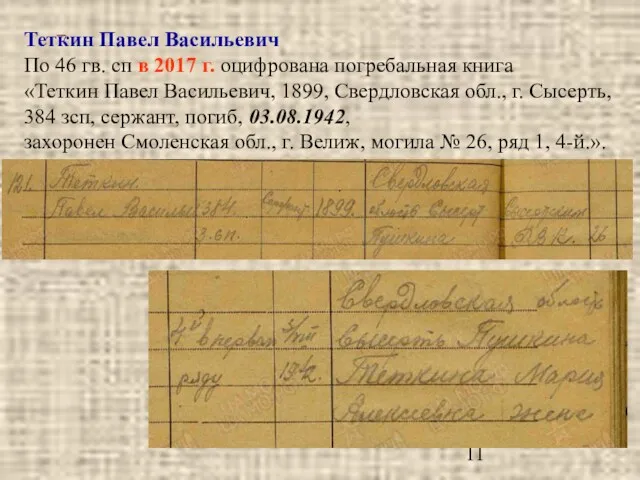 Теткин Павел Васильевич
По 46 гв. сп в 2017 г. оцифрована погребальная книга
«Теткин Павел Васильевич, 1899, Свердловская обл., г. Сысерть,
384 зсп, сержант, погиб, 03.08.1942,
захоронен Смоленская обл., г. Велиж, могила № 26, ряд 1, 4-й.».
121. Теткин. Свердловская
Павел Василий 384 сержант 1899. область Сысерт
З.сп. Пушкина Р.В.К. 26
Свердловская область
4й в первом 3/VIII Сысерть Пушкина
ряду 1942. Теткина Мария
Алексеевна жена
11